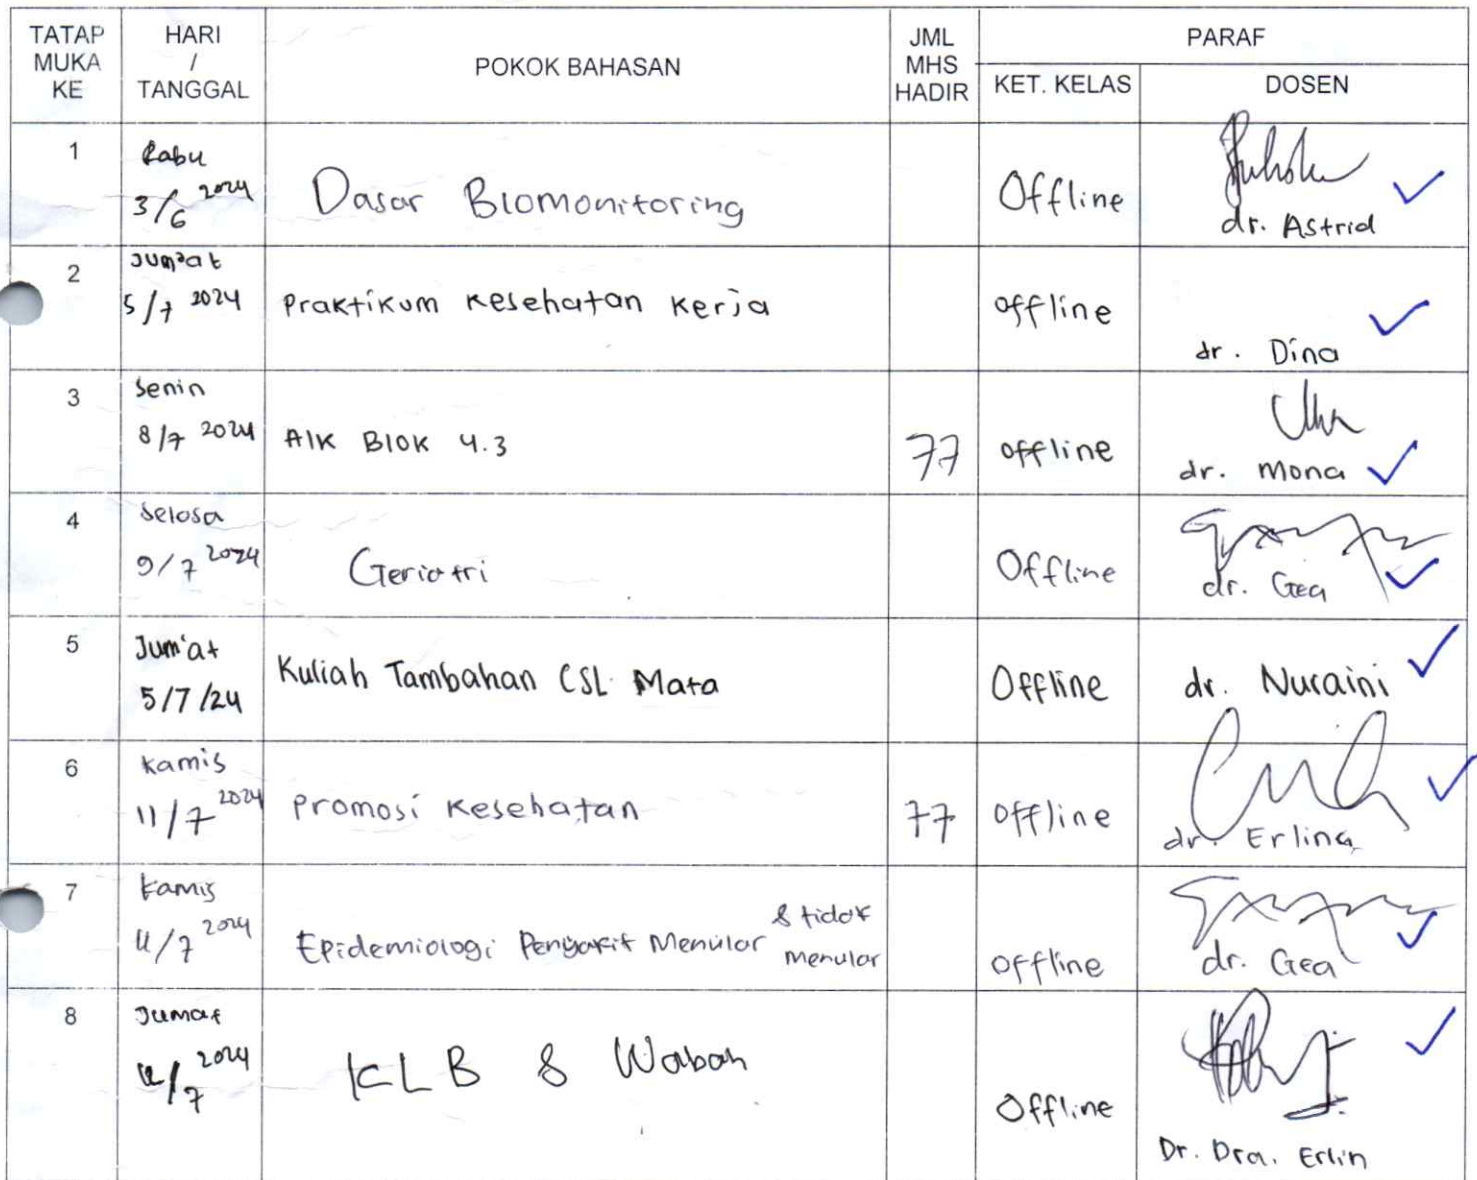 TATAP MUKA KE
HARI / TANGGAL
POKOK BAHASAN
JML MHS HADIR
PARAF
KET. KELAS
DOSEN
1
Rabu
3/6 2024
Dasar Biomonitoring
Offline
dr. Astrid
2
Jum'at
5/7 2024
Praktikum Kesehatan Kerja
offline
dr. Dina
3
Senin
8/7 2024
AIK Blok 4.3
77
offline
dr. Mona
4
Selasa
9/7 2024
Geriatri
Offline
dr. Gea
5
Jum'at
5/7/24
Kuliah Tambahan CSL Mata
Offline
dr. Nuraini
6
Kamis
11/7 2024
Promosi Kesehatan
77
offline
dr. Erlina
7
Kamis
11/7 2024
Epidemiologi Penyakit Menular & tidak menular
offline
dr. Gea
8
Jumat
12/7 2024
KLB & Wabah
Offline
Dr. Dra. Erlin